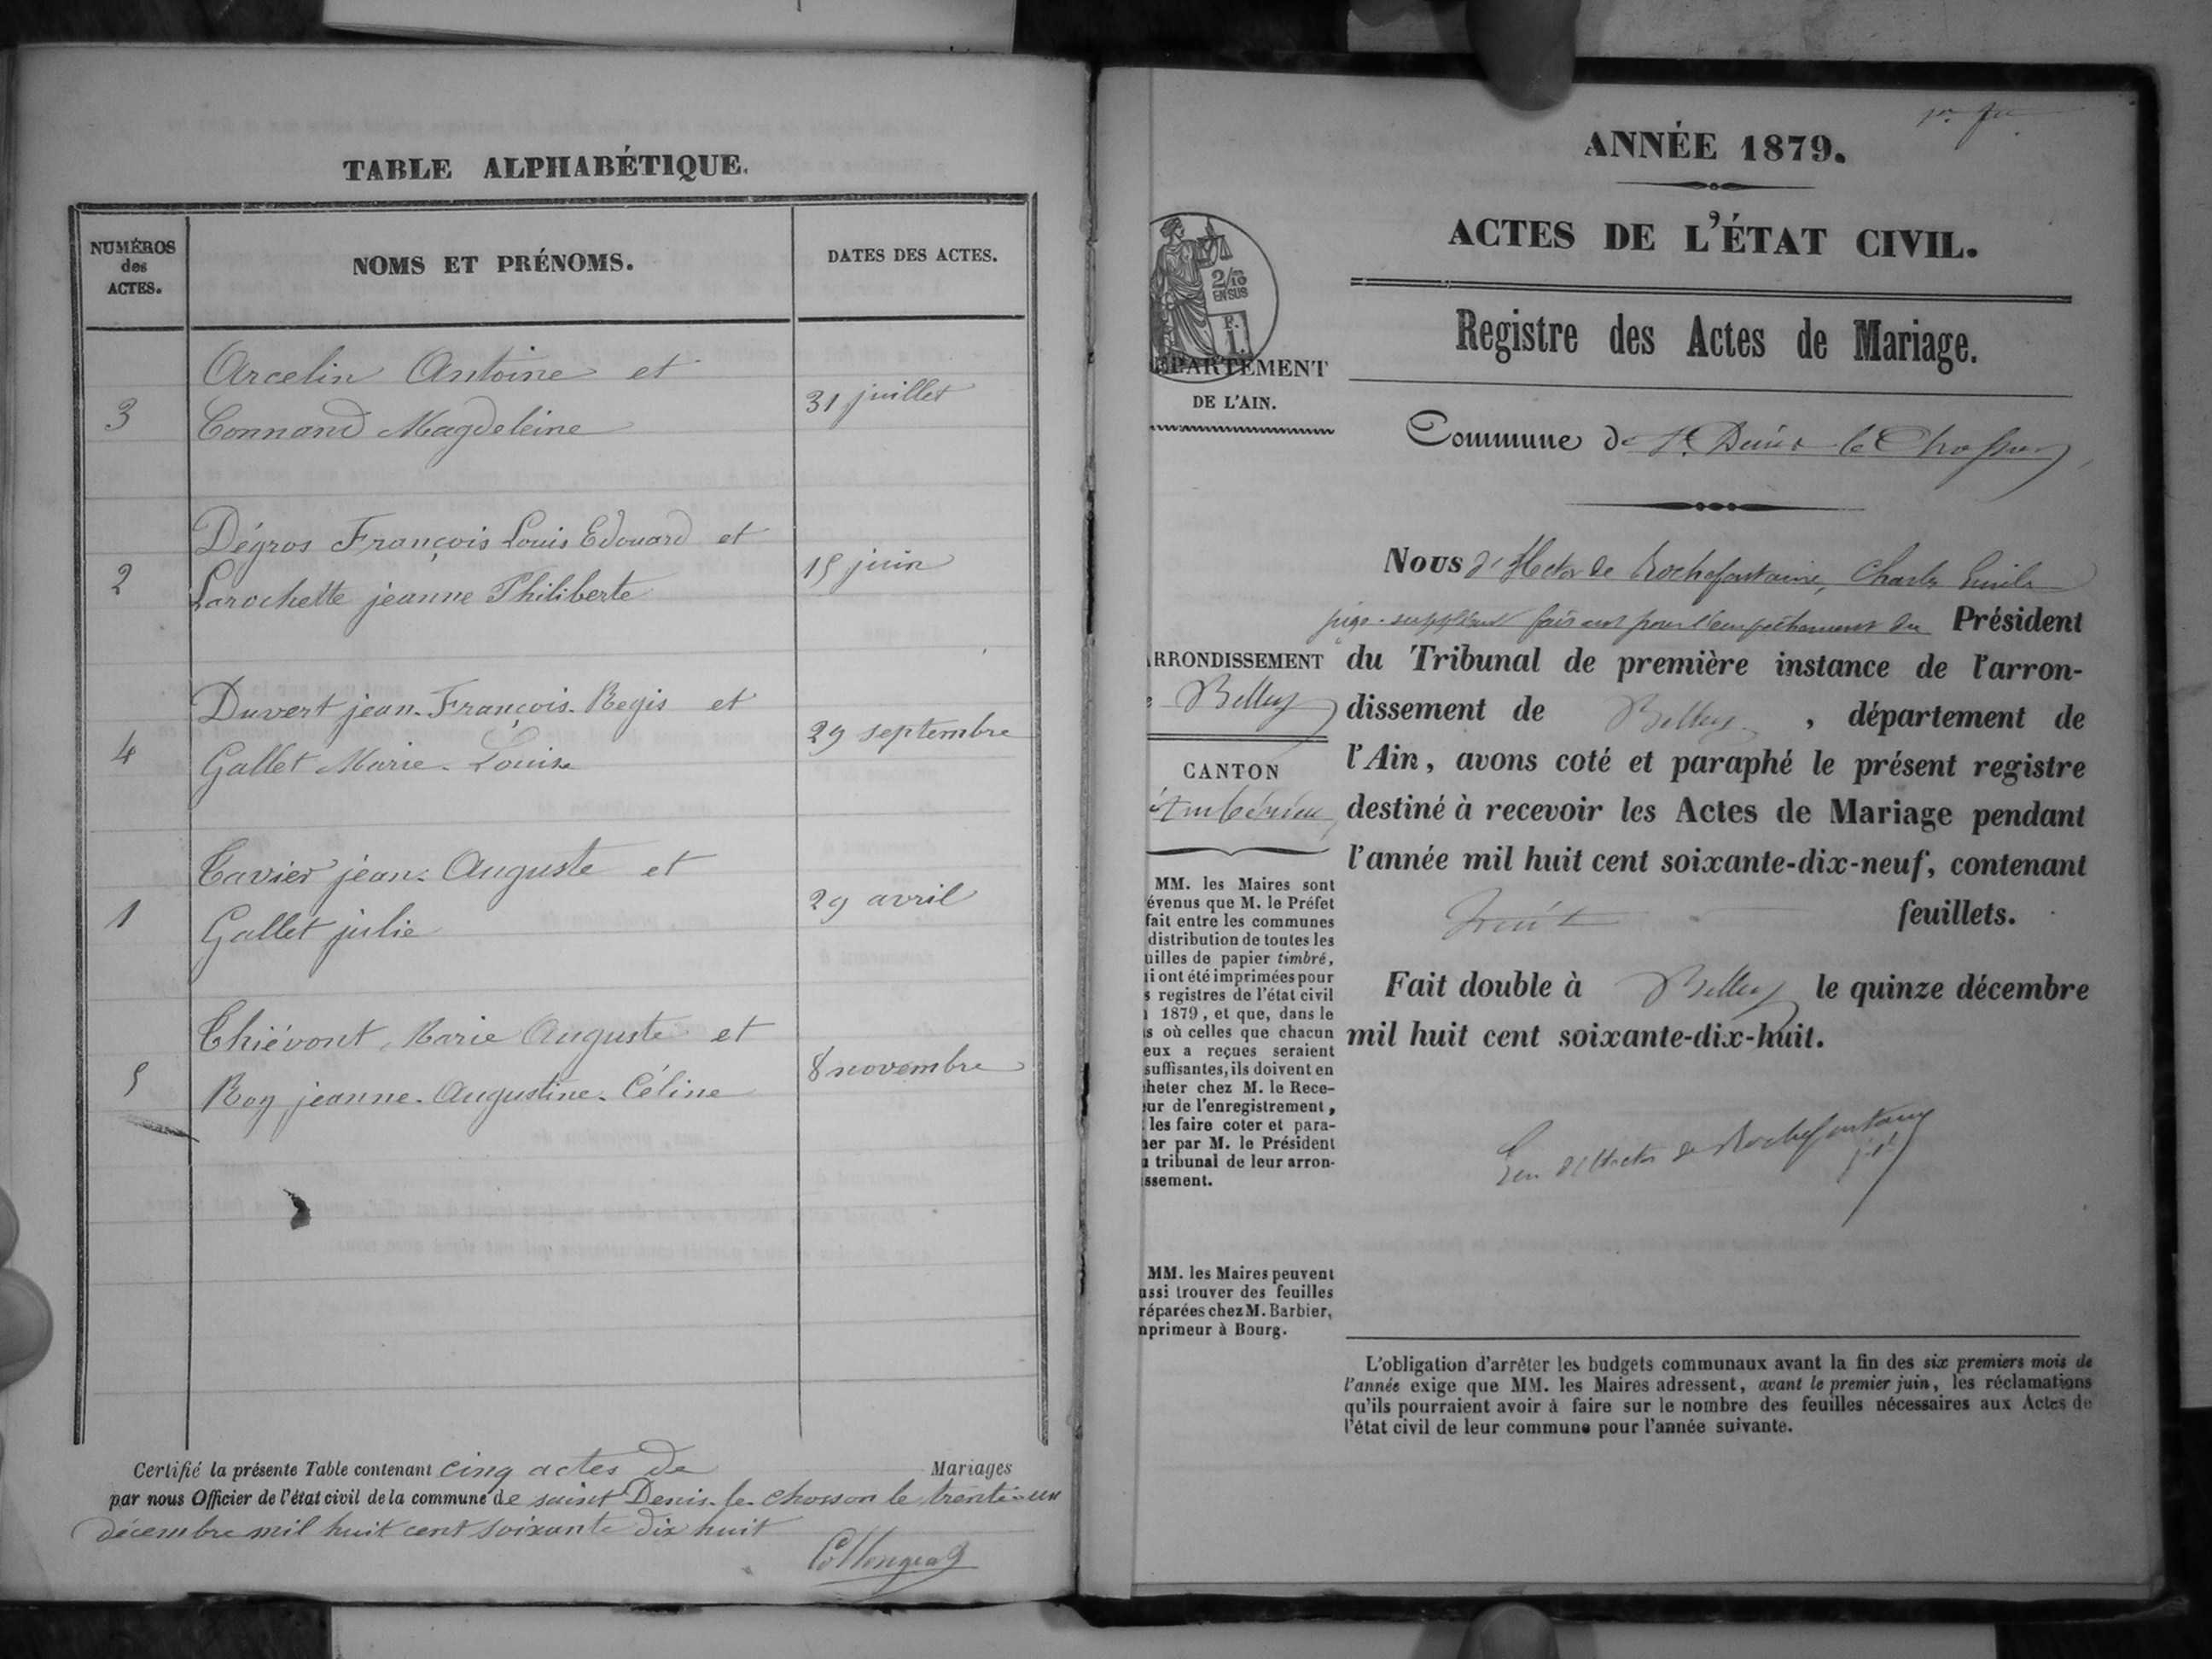 TABLE ALPHABÉTIQUE.
NUMÉROS
des
ACTES.
NOMS ET PRÉNOMS.
DATES DES ACTES.
Arcelin Antoine et
3
31 juillet
Connand Magdeleine
Dégros François Louis Edouard et
2
15 juin
Larochette jeanne Philiberte
Duvert jean-François-Regis et
4
29 septembre
Gallet Marie-Louise
Tavier jean-Auguste et
1
29 avril
Gallet julie
Thiévont Marie Auguste et
5
8 novembre
Roy jeanne-Augustine-Céline
Certifié la présente Table contenant cinq actes de Mariages
par nous Officier de l'état civil de la commune de saint Denis-le-chosson le trente-un
décembre mil huit cent soixante dix huit
ANNÉE 1879.
ACTES DE L'ÉTAT CIVIL.
2/10
EN SUS
F.
1.
Registre des Actes de Mariage.
DÉPARTEMENT
DE L'AIN.
Commune de St. Denis le Chosson
Nous d'Hector de Rochefontaine, Charles Emile
juge-suppléant faisant pour l'empêchement du Président
RRONDISSEMENT
Belley
du Tribunal de première instance de l'arron-
dissement de Belley, département de
l'Ain, avons coté et paraphé le présent registre
destiné à recevoir les Actes de Mariage pendant
l'année mil huit cent soixante-dix-neuf, contenant
huit feuillets.
Fait double à Belley le quinze décembre
mil huit cent soixante-dix-huit.
d'Hector de Rochefontaine
CANTON
Ambérieu
MM. les Maires sont
évenus que M. le Préfet
fait entre les communes
distribution de toutes les
uilles de papier timbré,
i ont été imprimées pour
s registres de l'état civil
1879, et que, dans le
s où celles que chacun
eux a reçues seraient
suffisantes, ils doivent en
heter chez M. le Rece-
ur de l'enregistrement,
les faire coter et para-
er par M. le Président
tribunal de leur arron-
ssement.
MM. les Maires peuvent
ussi trouver des feuilles
réparées chez M. Barbier,
nprimeur à Bourg.
L'obligation d'arrêter les budgets communaux avant la fin des six premiers mois de
l'année exige que MM. les Maires adressent, avant le premier juin, les réclamations
qu'ils pourraient avoir à faire sur le nombre des feuilles nécessaires aux Actes de
l'état civil de leur commune pour l'année suivante.